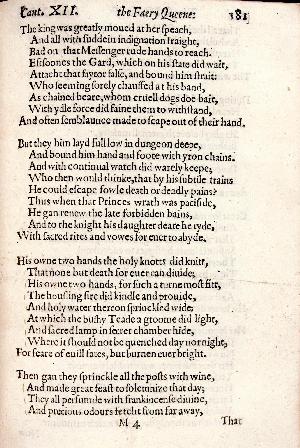 Cant. XII. the Faery Queene. 181
The king was greatly moued at her speach,
And all with suddein indignation fraight,
Bad on that Messenger rude hands to reach.
Eftsoones the Gard, which on his state did wait,
Attacht that faytor false, and bound him strait:
Who seeming sorely chauffed at his band,
As chained beare, whom cruell dogs doe bait,
With ydle force did faine them to withstand,
And often semblaunce made to scape out of their hand.
But they him layd full low in dungeon deepe,
And bound him hand and foote with yron chains.
And with continual watch did warely keepe;
Who then would thinke, that by his subtile trains
He could escape fowle death or deadly pains?
Thus when that Princes wrath was pacifide,
He gan renew the late forbidden bains,
And to the knight his daughter deare he tyde,
With sacred rites and vowes for euer to abyde.
His owne two hands the holy knotts did knitt,
That none but death for euer can diuide;
His owne two hands, for such a turne most fitt,
The housling fire did kindle and prouide,
And holy water thereon sprinckled wide;
At which the bushy Teade a groome did light,
And sacred lamp in secret chamber hide,
Where it should not be quenched day nor night,
For feare of euill fates, but burnen euer bright.
Then gan they sprinckle all the posts with wine,
And made great feast to solemnize that day;
They all perfumde with frankincense diuine,
And precious odours fetcht from far away,
M 4. That